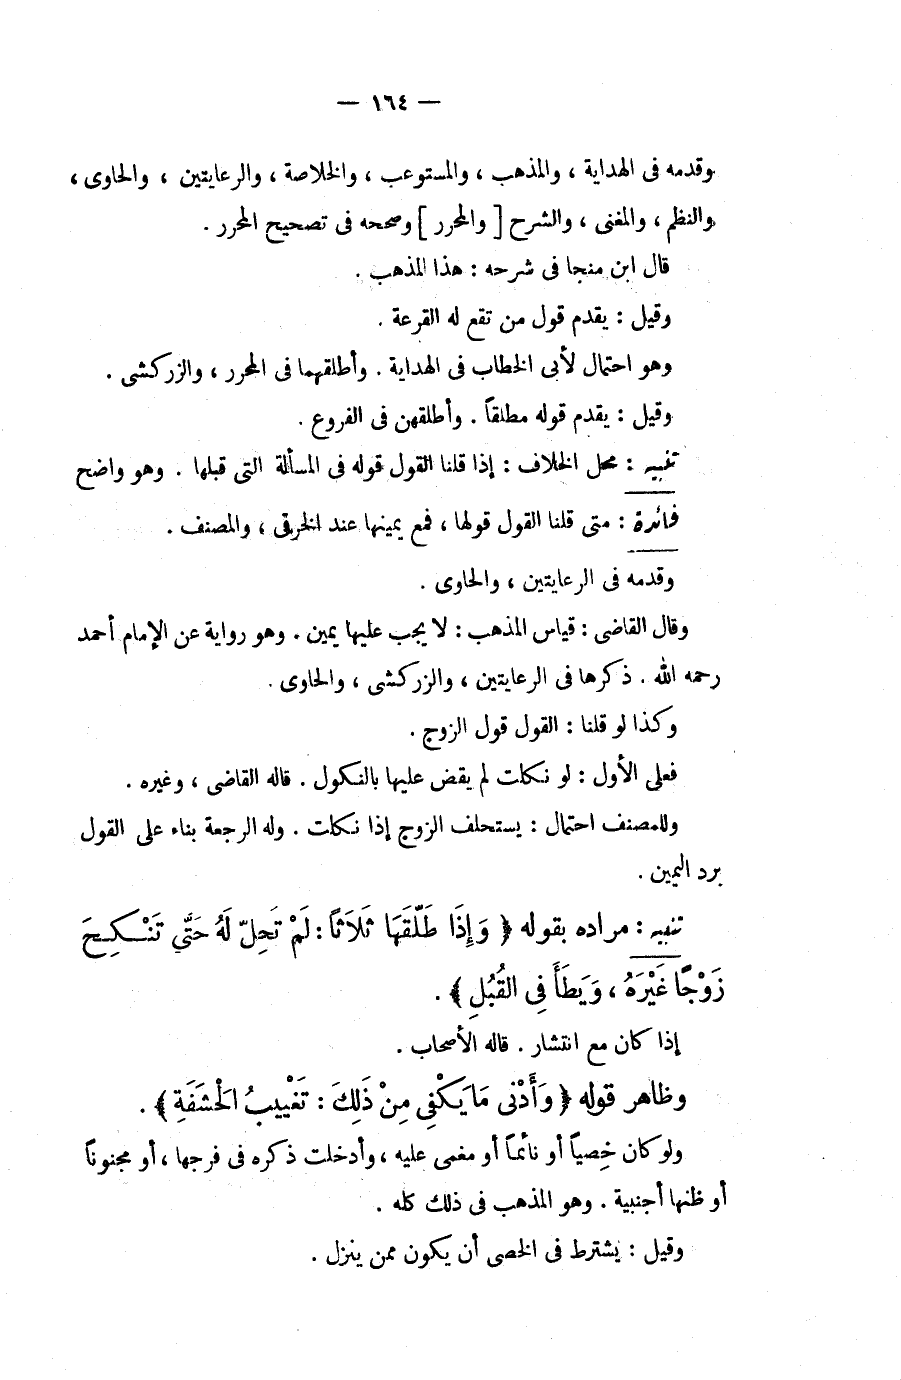 — ١٦٤ —
وقدمه فى الهداية ، والمذهب ، والمستوعب ، والخلاصة ، والرعايتين ، والحاوى ،
والنظم ، والمغنى ، والشرح [ والمحرر ] وصححه فى تصحيح المحرر .
قال ابن منجا فى شرحه : هذا المذهب .
وقيل : يقدم قول من تقع له القرعة .
وهو احتمال لأبى الخطاب فى الهداية . وأطلقهما فى المحرر ، والزركشى .
وقيل : يقدم قوله مطلقاً . وأطلقهن فى الفروع .
تنبيه : محل الخلاف : إذا قلنا القول قوله فى المسألة التى قبلها . وهو واضح
فائدة : متى قلنا القول قولها ، فمع يمينها عند الخرقى ، والمصنف .
وقدمه فى الرعايتين ، والحاوى .
وقال القاضى : قياس المذهب : لا يجب عليها يمين . وهو رواية عن الإمام أحمد
رحمه الله . ذكرها فى الرعايتين ، والزركشى ، والحاوى .
وكذا لو قلنا : القول قول الزوج .
فعلى الأول : لو نكلت لم يقض عليها بالنكول . قاله القاضى ، وغيره .
وللمصنف احتمال : يستحلف الزوج إذا نكلت . وله الرجعة بناء على القول
برد اليمين .
تنبيه : مراده بقوله ﴿ وَإِذَا طَلَّقَهَا ثَلَاثاً : لَمْ تَحِلّ لَهُ حَتَّي تَنْكِحَ
زَوْجًا غَيْرَهُ ، وَيَطَأَ فِى القُبُلِ ﴾ .
إذا كان مع انتشار . قاله الأصحاب .
وظاهر قوله ﴿ وَأَدْنَى مَا يَكْفِى مِنْ ذَلِكَ : تَغْيِيبُ الحَشَفَةِ ﴾ .
ولو كان خصياً أو نائماً أو مغمى عليه ، وأدخلت ذكره فى فرجها ، أو مجنوناً
أو ظنها أجنبية . وهو المذهب فى ذلك كله .
وقيل : يشترط فى الخصى أن يكون ممن ينزل .